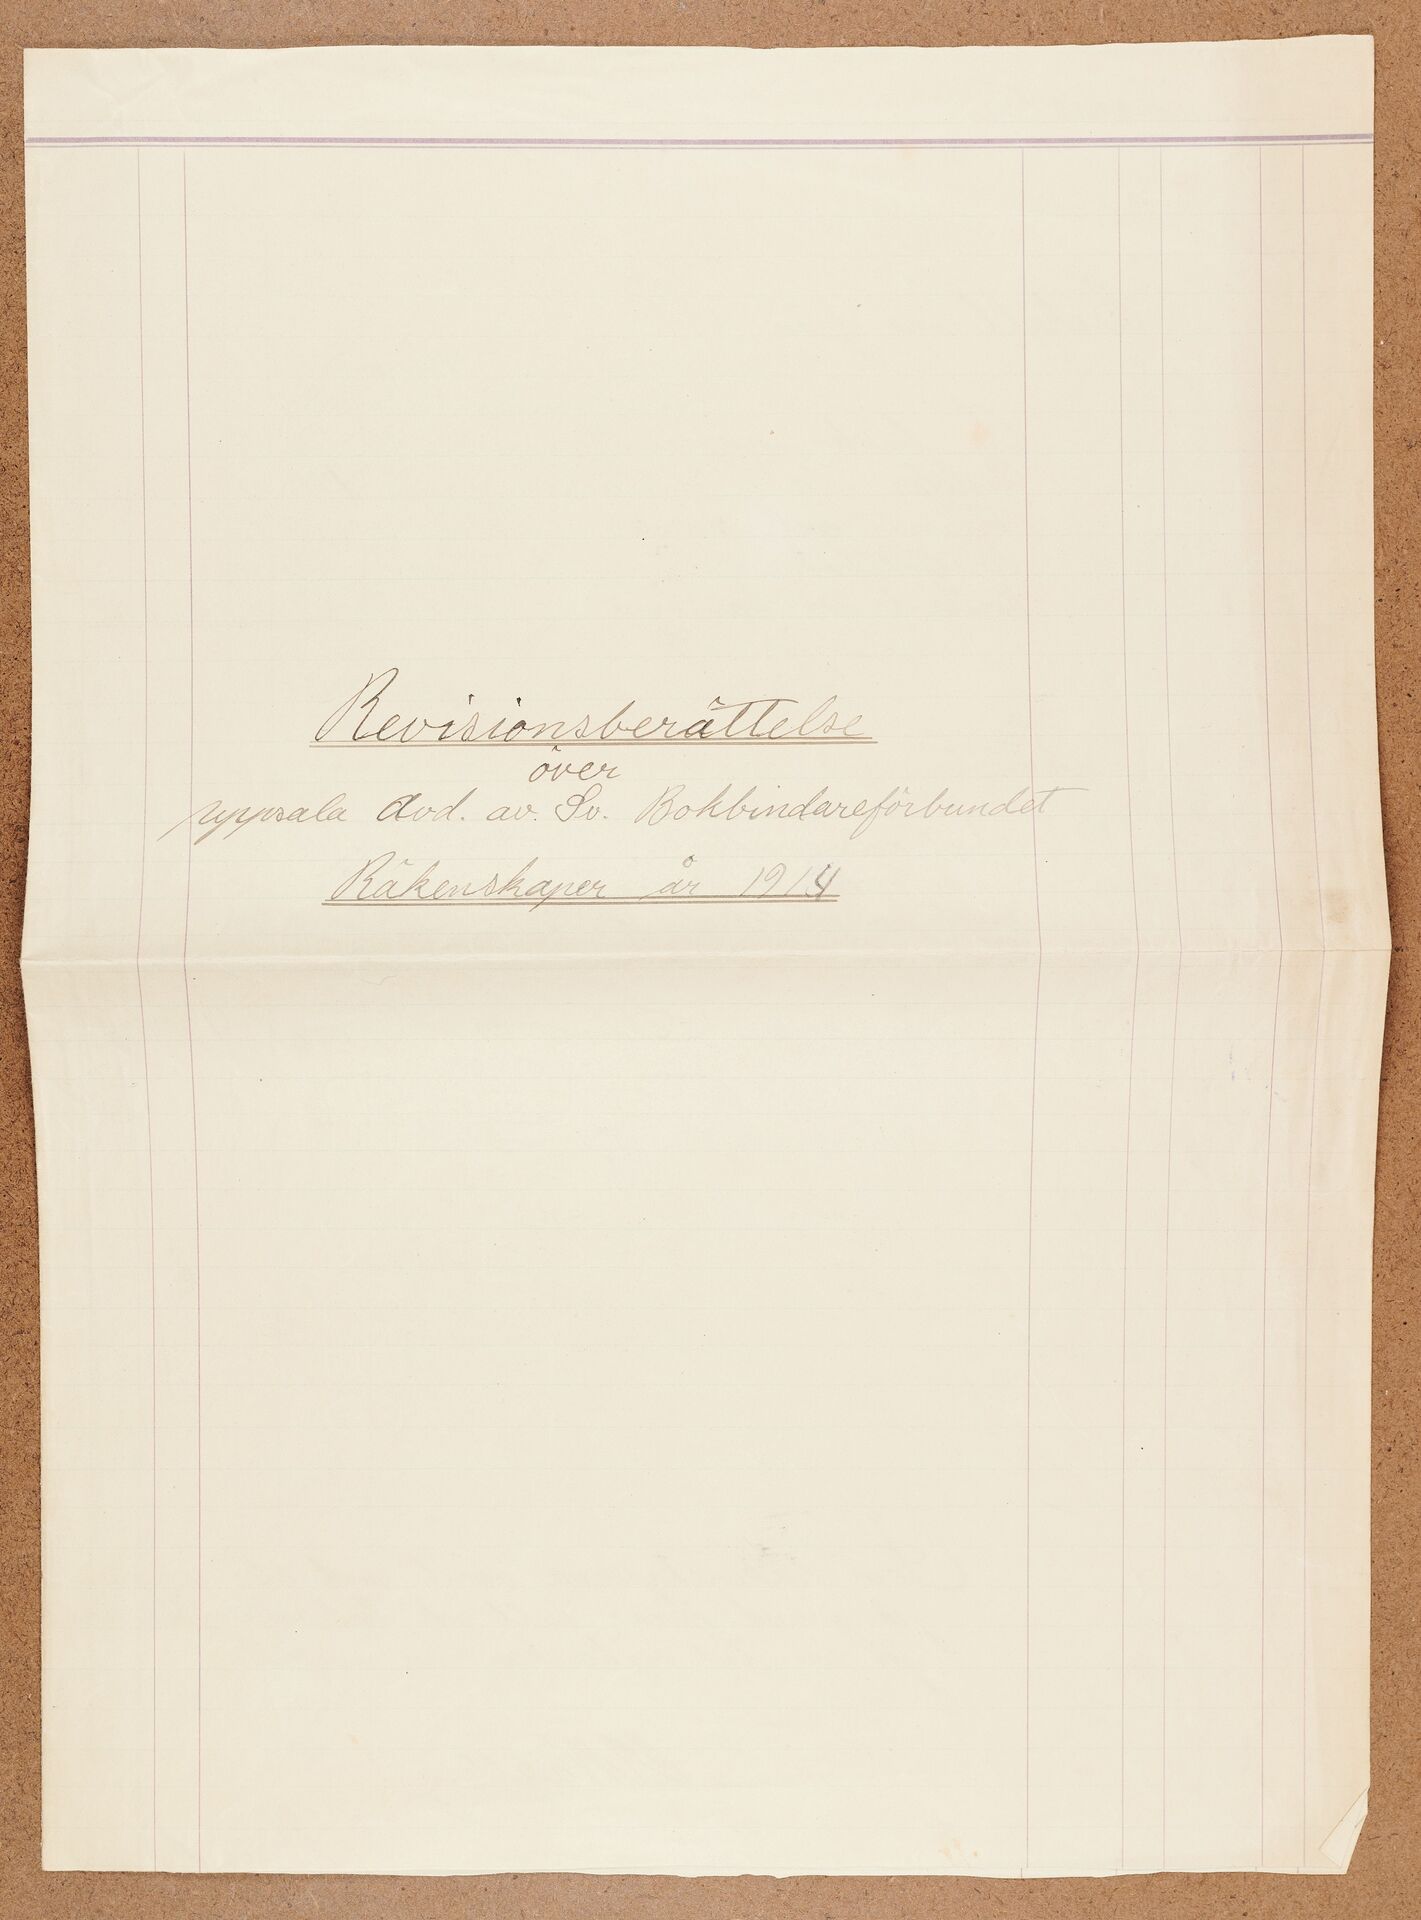 Revisionsberättelse
över
Uppsala avd. av. Sv. Bokbindareförbundet
Räkenskaper år 1914